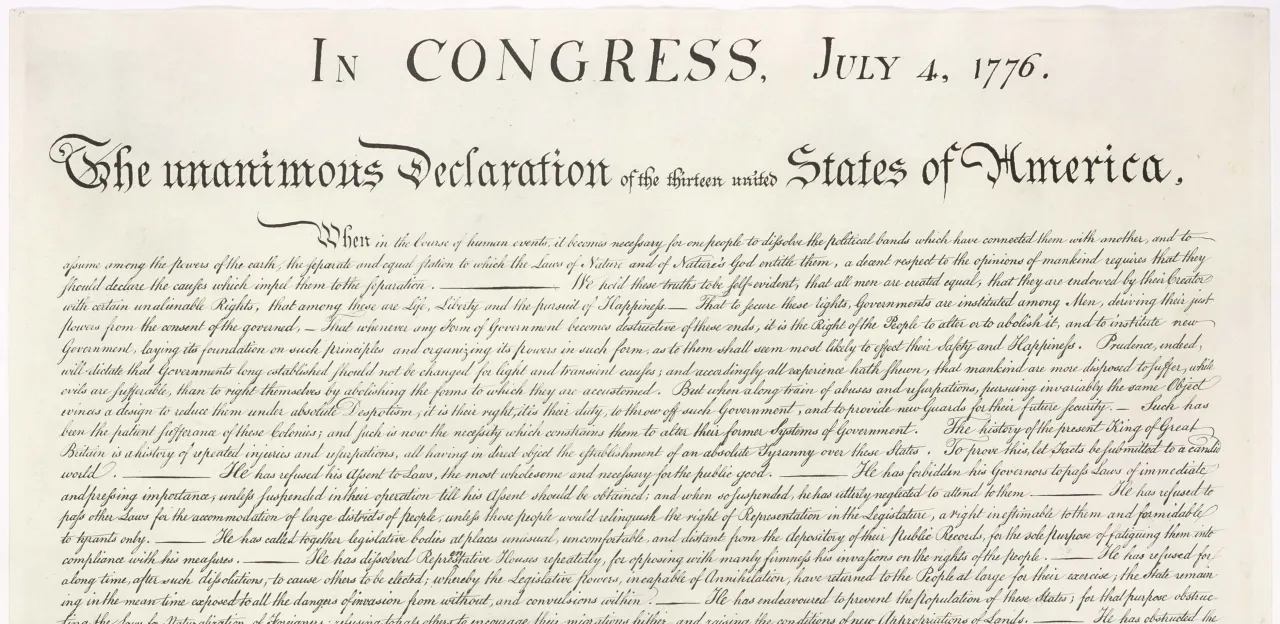 In CONGRESS, July 4, 1776.
The unanimous Declaration of the thirteen united States of America,
When in the Course of human events, it becomes necessary for one people to dissolve the political bands which have connected them with another, and to
assume among the powers of the earth, the separate and equal station to which the Laws of Nature and of Nature's God entitle them, a decent respect to the opinions of mankind requires that they
should declare the causes which impel them to the separation. —— We hold these truths to be self-evident, that all men are created equal, that they are endowed by their Creator
with certain unalienable Rights, that among these are Life, Liberty and the pursuit of Happiness.— That to secure these rights, Governments are instituted among Men, deriving their just
powers from the consent of the governed, — That whenever any Form of Government becomes destructive of these ends, it is the Right of the People to alter or to abolish it, and to institute new
Government, laying its foundation on such principles and organizing its powers in such form, as to them shall seem most likely to effect their Safety and Happiness. Prudence, indeed,
will dictate that Governments long established should not be changed for light and transient causes; and accordingly all experience hath shewn, that mankind are more disposed to suffer, while
evils are sufferable, than to right themselves by abolishing the forms to which they are accustomed. But when a long train of abuses and usurpations, pursuing invariably the same Object
evinces a design to reduce them under absolute Despotism, it is their right, it is their duty, to throw off such Government, and to provide new Guards for their future security. — Such has
been the patient sufferance of these Colonies; and such is now the necessity which constrains them to alter their former Systems of Government. The history of the present King of Great
Britain is a history of repeated injuries and usurpations, all having in direct object the establishment of an absolute Tyranny over these States. To prove this, let Facts be submitted to a candid
world. —— He has refused his Assent to Laws, the most wholesome and necessary for the public good. —— He has forbidden his Governors to pass Laws of immediate
and pressing importance, unless suspended in their operation till his Assent should be obtained; and when so suspended, he has utterly neglected to attend to them. —— He has refused to
pass other Laws for the accommodation of large districts of people, unless those people would relinquish the right of Representation in the Legislature, a right inestimable to them and formidable
to tyrants only. —— He has called together legislative bodies at places unusual, uncomfortable, and distant from the depository of their public Records, for the sole purpose of fatiguing them into
compliance with his measures. —— He has dissolved Representative Houses repeatedly, for opposing with manly firmness his invasions on the rights of the people. —— He has refused for
a long time, after such dissolutions, to cause others to be elected; whereby the Legislative powers, incapable of Annihilation, have returned to the People at large for their exercise; the State remain
ing in the mean time exposed to all the dangers of invasion from without, and convulsions within. —— He has endeavoured to prevent the population of these States; for that purpose obstruc
ting the Laws for Naturalization of Foreigners; refusing to pass others to encourage their migrations hither, and raising the conditions of new Appropriations of Lands. —— He has obstructed the